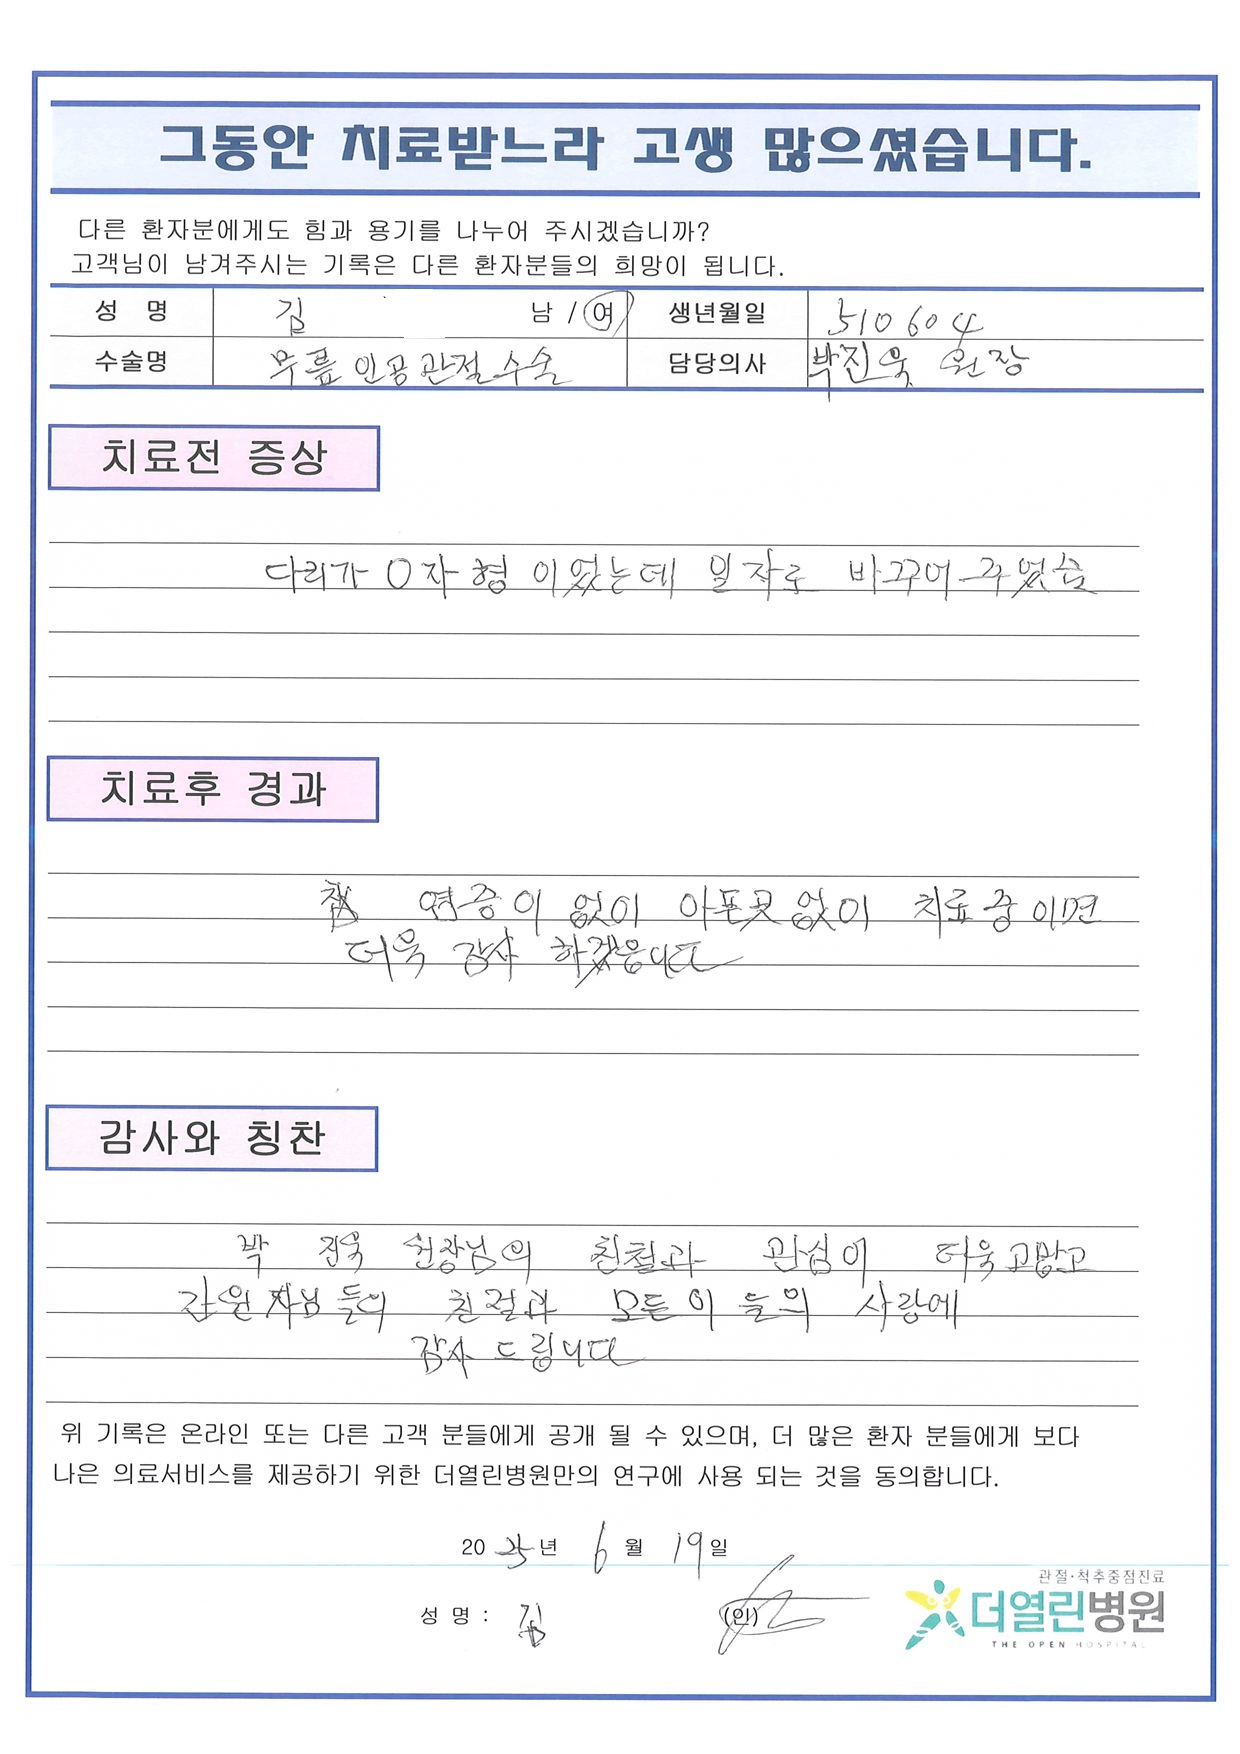 그동안 치료받느라 고생 많으셨습니다.
다른 환자분에게도 힘과 용기를 나누어 주시겠습니까?
고객님이 남겨주시는 기록은 다른 환자분들의 희망이 됩니다.
성 명 김 남 / 여 생년월일 510604
수술명 무릎 인공관절수술 담당의사 박진욱 원장
치료전 증상
다리가 O자형 이었는데 일자로 바꾸어주었음
치료후 경과
염증이 없이 아픈곳없이 치료중이면
더욱 감사 하겠습니다
감사와 칭찬
박 진욱 원장님의 친철과 관심이 더욱고맙고
간원자님 들의 친절과 모든이들의 사랑에
감사 드립니다
위 기록은 온라인 또는 다른 고객 분들에게 공개 될 수 있으며, 더 많은 환자 분들에게 보다
나은 의료서비스를 제공하기 위한 더열린병원만의 연구에 사용 되는 것을 동의합니다.
2025년 6월 19일
관절·척추중점진료
성 명 : 김 (인) 더열린병원
THE OPEN HOSPITAL